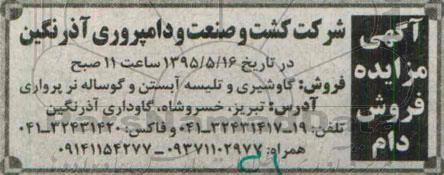 آگهی
مزایده
فروش
دام
شرکت کشت و صنعت و دامپروری آذرنگین
در تاریخ ۱۳۹۵/۵/۱۶ ساعت ۱۱ صبح
فروش: گاوشیری و تلیسه آبستن و گوساله نر پرواری
آدرس: تبریز، خسروشاه، گاوداری آذرنگین
تلفن: ۱۹_۳۲۴۳۱۴۱۷_۰۴۱ و فاکس: ۳۲۴۳۱۴۲۰_۰۴۱
همراه: ۰۹۳۷۱۱۰۲۹۷۷_۰۹۱۴۱۱۵۴۲۷۷